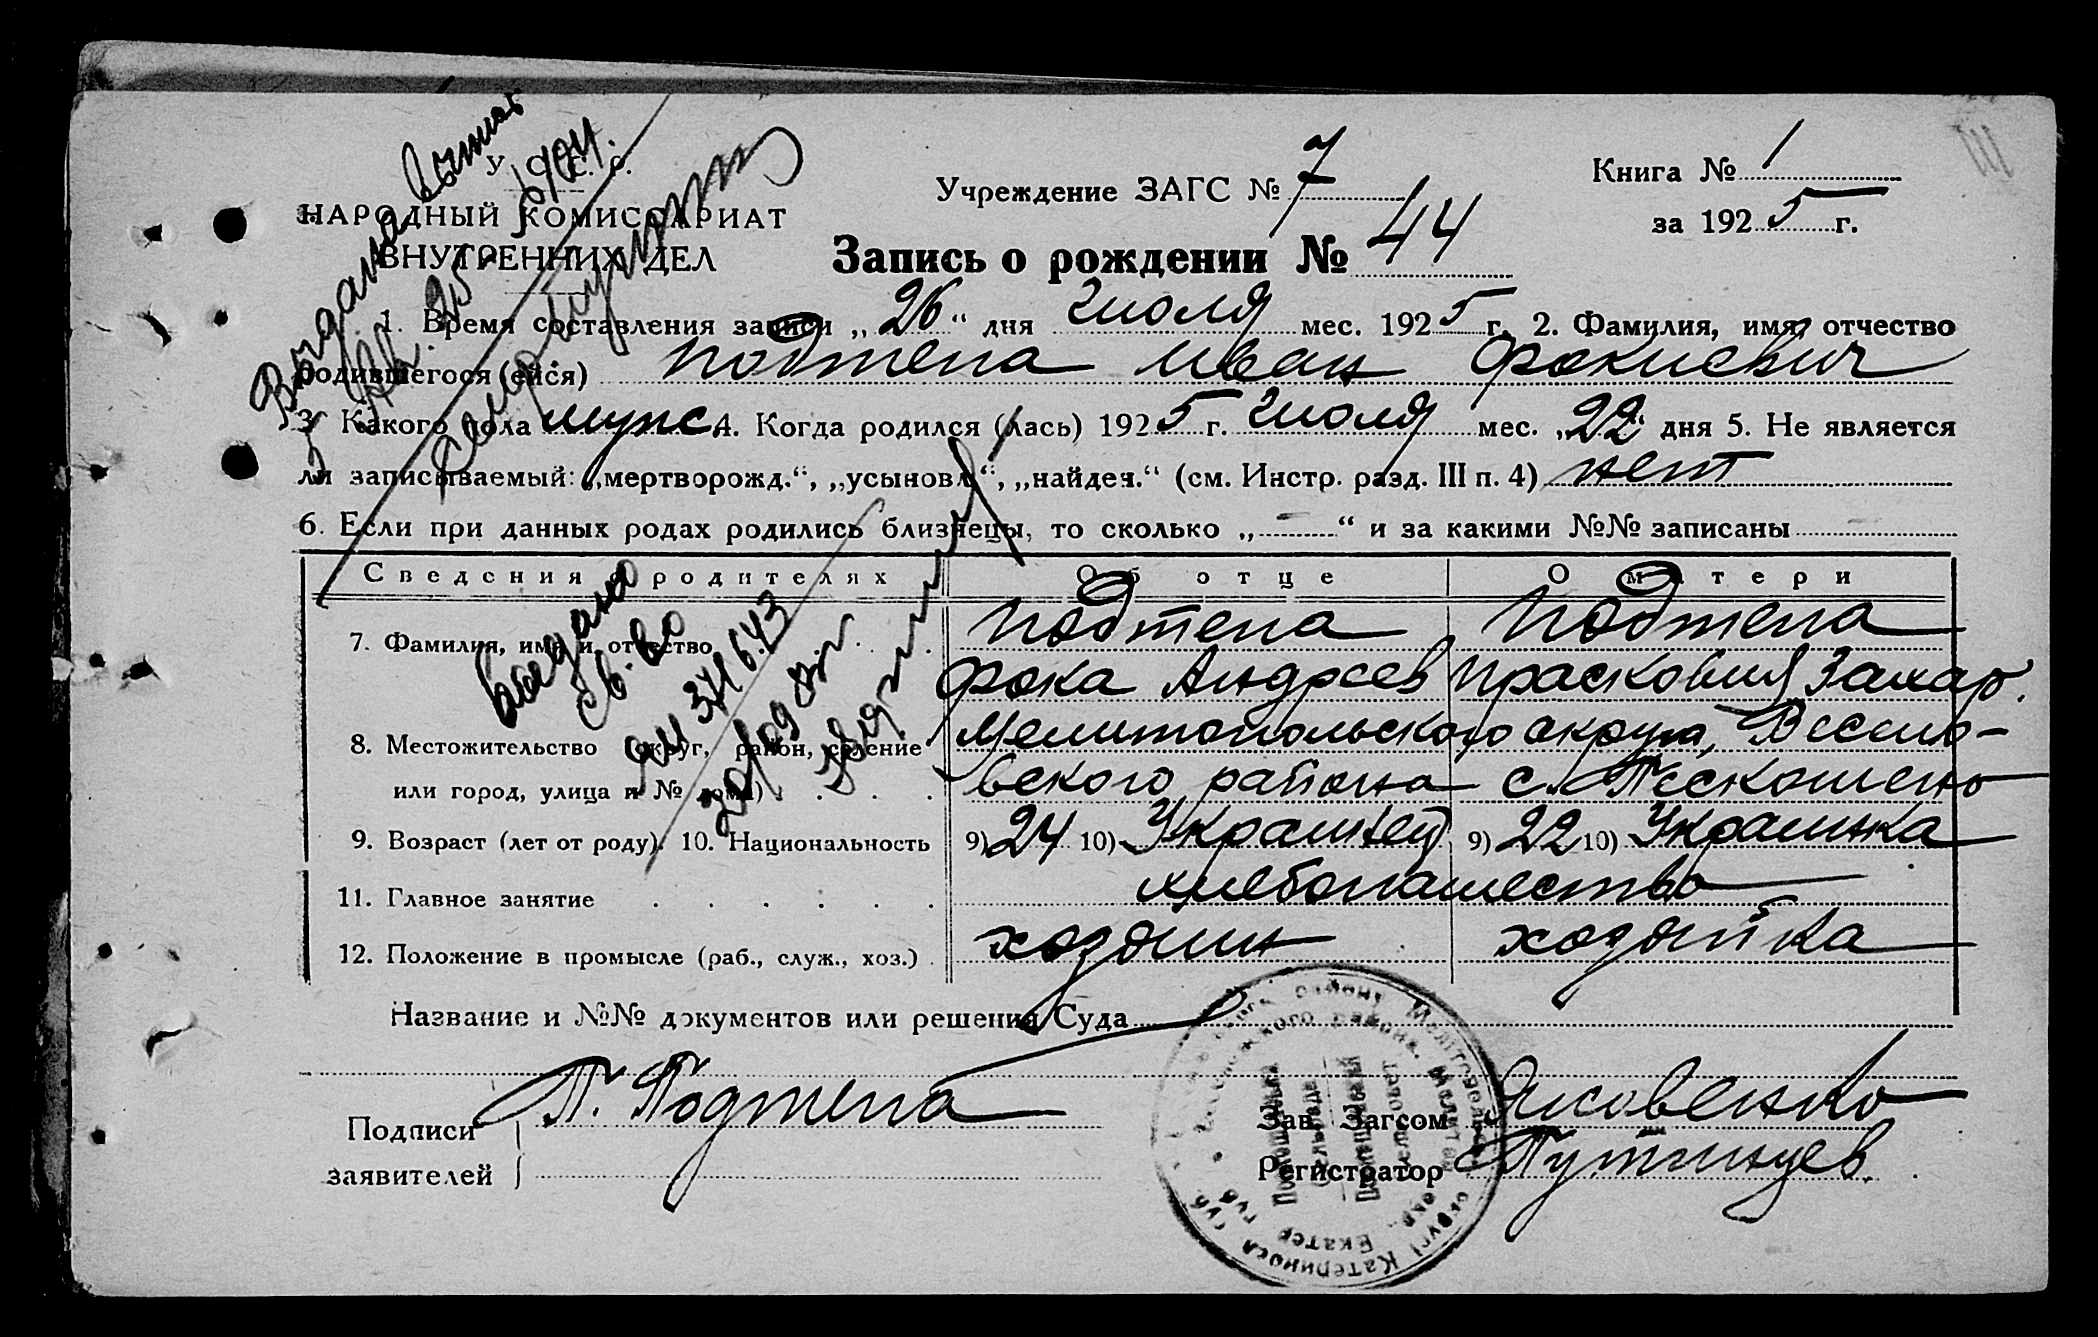 У. С. С. Р.
НАРОДНЫЙ КОМИССАРИАТ
ВНУТРЕННИХ ДЕЛ
Учреждение ЗАГС № 7
Книга № 1
за 1925 г.
Запись о рождении № 44
1. Время составления записи „26“ дня Июля мес. 1925 г. 2. Фамилия, имя, отчество
родившегося (ейся) Подтепа Иван Фокиевич
3. Какого пола мужс. 4. Когда родился (лась) 1925 г. Июля мес. „22“ дня 5. Не является
ли записываемый: „мертворожд.“, „усыновл.“, „найден.“ (см. Инстр. разд. III п. 4) нет
6. Если при данных родах родились близнецы, то сколько „-“ и за какими №№ записаны
Сведения о родителях Об отце О матери
7. Фамилия, имя и отчество Подтепа Подтепа
Фока Андреев Прасковия Захар.
8. Местожительство округ, район, селение Мелитопольского округа, Весело-
или город, улица и № дома) вского района с.
9. Возраст (лет от роду). 10. Национальность 9) 24 10) Украинец 9) 22 10) Украинка
11. Главное занятие хлебопашество
12. Положение в промысле (раб., служ., хоз.) хозяин хозяйка
Название и №№ документов или решения Суда
Подписи
заявителей
П. Подтепа
Зав. Загсом Яковенко
Регистратор Путинцев.
Выдана
Выдано
св-во